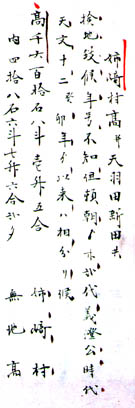 姉崎村高井天羽田新田共
検地致候年号不知但頼朝ゟ代義澄公時代
天文十二癸卯年ゟ以来ハ相分り候
高千六百拾石八斗壱升五合 姉崎村
内四拾八石六斗七升六合弐夕 無地高